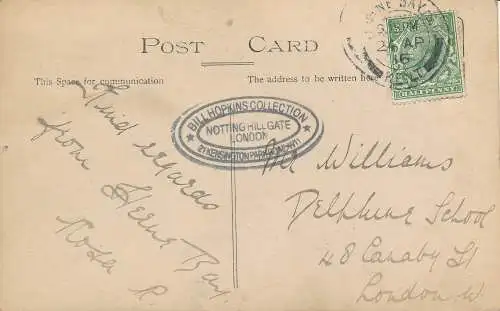 POST CARD
This Space for communication
The address to be written here
HALFPENNY
BILL HOPKINS COLLECTION
NOTTING HILL GATE
LONDON
Kind regards
from Herne Bay
Rosa R.
Williams
Delphine School
48 Canaby St
London W.